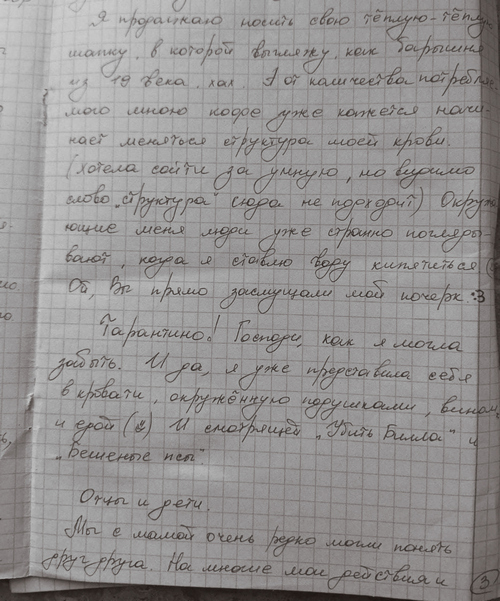 Я продолжаю носить свою тёплую-тёплую
шапку, в которой выгляжу, как барышня
из 19 века, хах. А от количества потребляе-
мого мною кофе уже кажется начи-
нает меняться структура моей крови.
(хотела сойти за умную, но видимо
слово „структура“ сюда не подходит) Окружа-
ющие меня люди уже странно погляды-
вают, когда я ставлю воду кипятиться
Ой, Вы прямо засмущали мой почерк :3
Тарантино! Господи, как я могла
забыть. И да, я уже представила себя
в кровати, окружённую подушками, вином,
и едой (с) И смотрящей „Убить Билла“ и
„Бешеные псы“.
Отцы и дети.
Мы с мамой очень редко могли понять
друг друга. На многие мои действия и
3